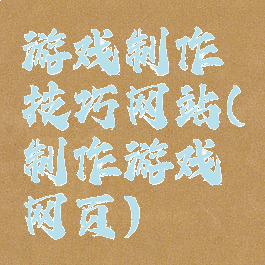 游戏制作
技巧网站(
制作游戏
网页)